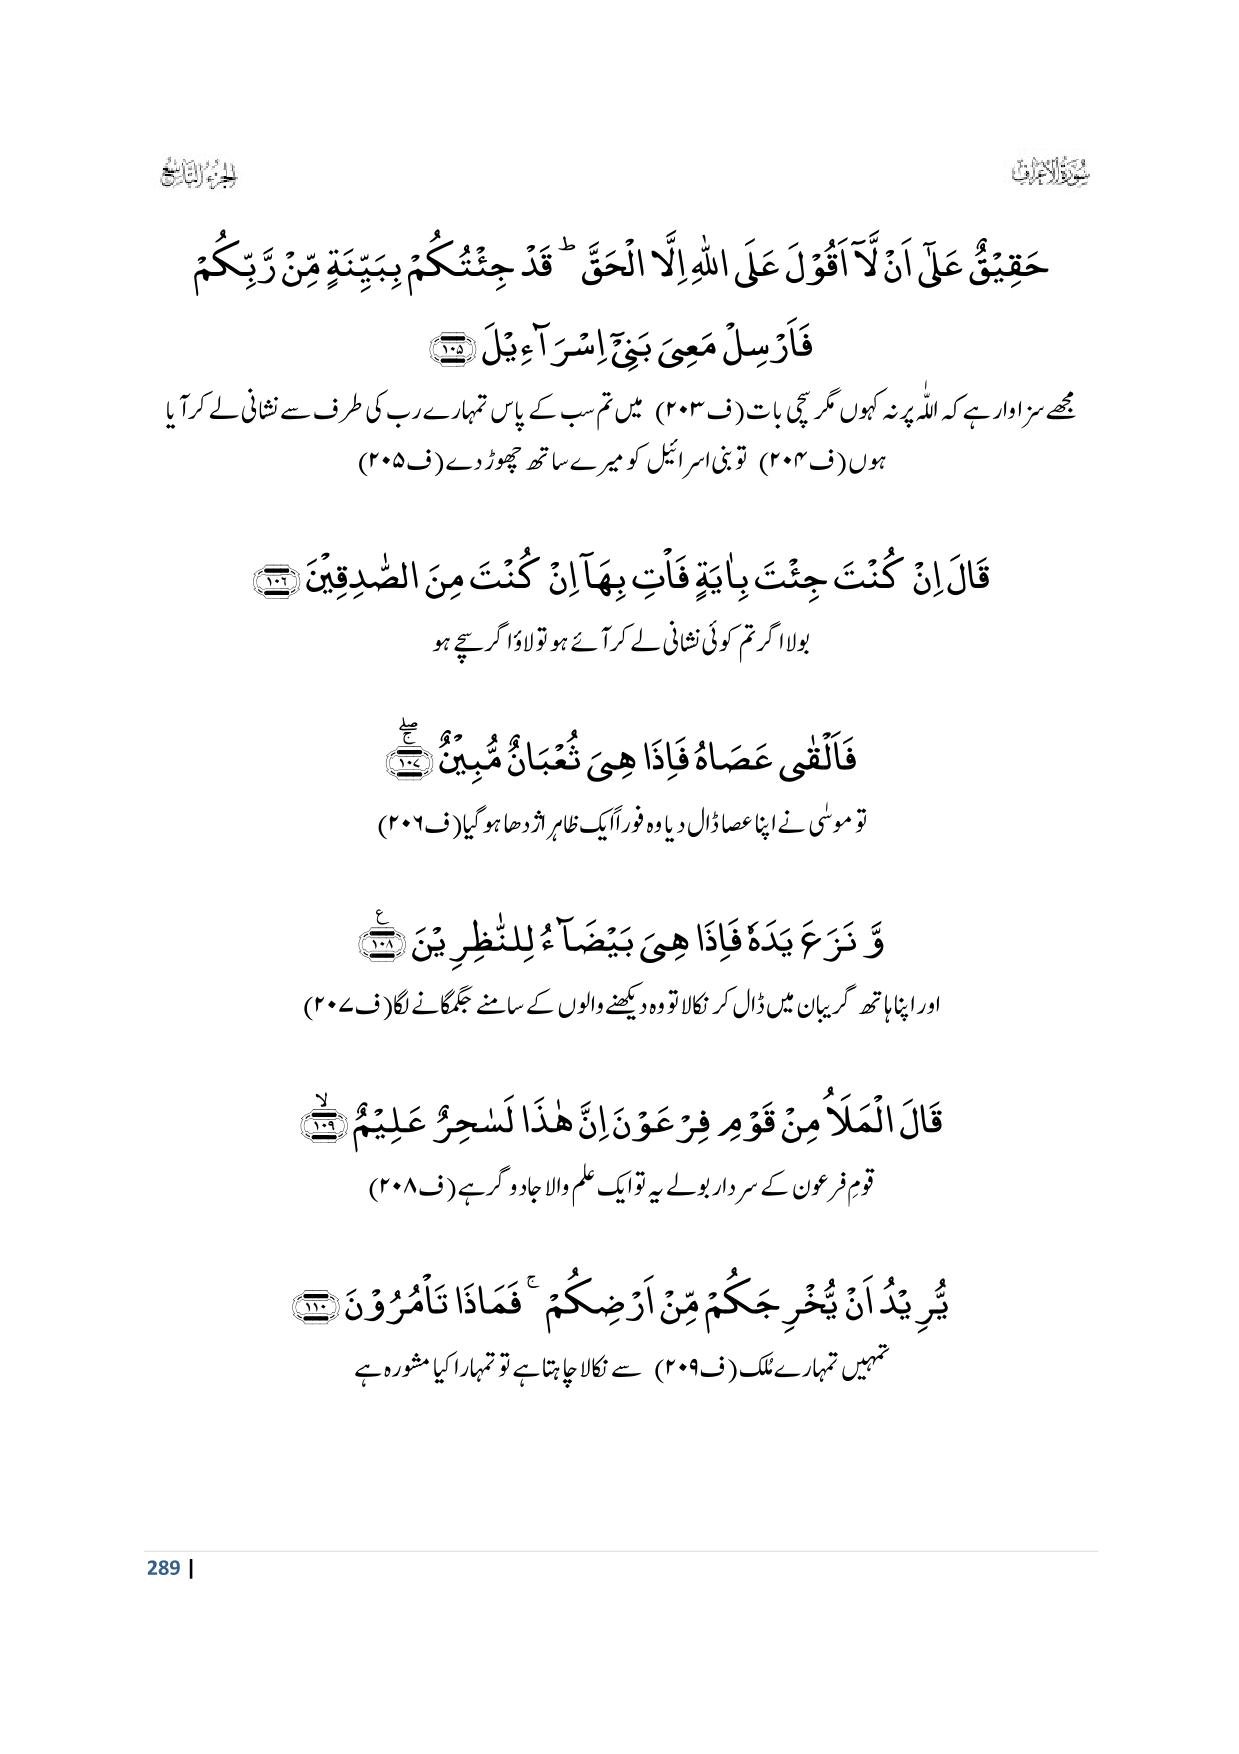 سُوْرَةُ الْاَعْرَاف
الجزء التاسع
حَقِيْقٌ عَلٰۤى اَنْ لَّاۤ اَقُوْلَ عَلَى اللّٰهِ اِلَّا الْحَقَّ ؕ قَدْ جِئْتُكُمْ بِبَيِّنَةٍ مِّنْ رَّبِّكُمْ
فَاَرْسِلْ مَعِیَ بَنِیْۤ اِسْرَآءِیْلَ ﴿۱۰۵﴾
مجھے سزاوار ہے کہ اللّٰہ پر نہ کہوں مگر سچی بات (ف۲۰۳) میں تم سب کے پاس تمہارے رب کی طرف سے نشانی لے کر آیا
ہوں (ف۲۰۴) تو بنی اسرائیل کو میرے ساتھ چھوڑ دے (ف۲۰۵)
قَالَ اِنْ كُنْتَ جِئْتَ بِاٰيَةٍ فَاْتِ بِهَاۤ اِنْ كُنْتَ مِنَ الصّٰدِقِيْنَ ﴿۱۰۶﴾
بولا اگر تم کوئی نشانی لے کر آئے ہو تو لاؤ اگر سچے ہو
فَاَلْقٰى عَصَاهُ فَاِذَا هِیَ ثُعْبَانٌ مُّبِيْنٌ ﴿۱۰۷﴾ ۚۖ
تو موسٰی نے اپنا عصا ڈال دیا وہ فوراً ایک ظاہر اژدھا ہو گیا (ف۲۰۶)
وَّ نَزَعَ يَدَهٗ فَاِذَا هِیَ بَيْضَآءُ لِلنّٰظِرِيْنَ ﴿۱۰۸﴾ ع
اور اپنا ہاتھ گریبان میں ڈال کر نکالا تو وہ دیکھنے والوں کے سامنے جگمگانے لگا (ف۲۰۷)
قَالَ الْمَلَاُ مِنْ قَوْمِ فِرْعَوْنَ اِنَّ هٰذَا لَسٰحِرٌ عَلِيْمٌ ﴿۱۰۹﴾ ۙ
قومِ فرعون کے سردار بولے یہ تو ایک علم والا جادوگر ہے (ف۲۰۸)
يُّرِيْدُ اَنْ يُّخْرِجَكُمْ مِّنْ اَرْضِكُمْ ۚ فَمَاذَا تَاْمُرُوْنَ ﴿۱۱۰﴾
تمہیں تمہارے مُلک (ف۲۰۹) سے نکالا چاہتا ہے تو تمہارا کیا مشورہ ہے
289 |